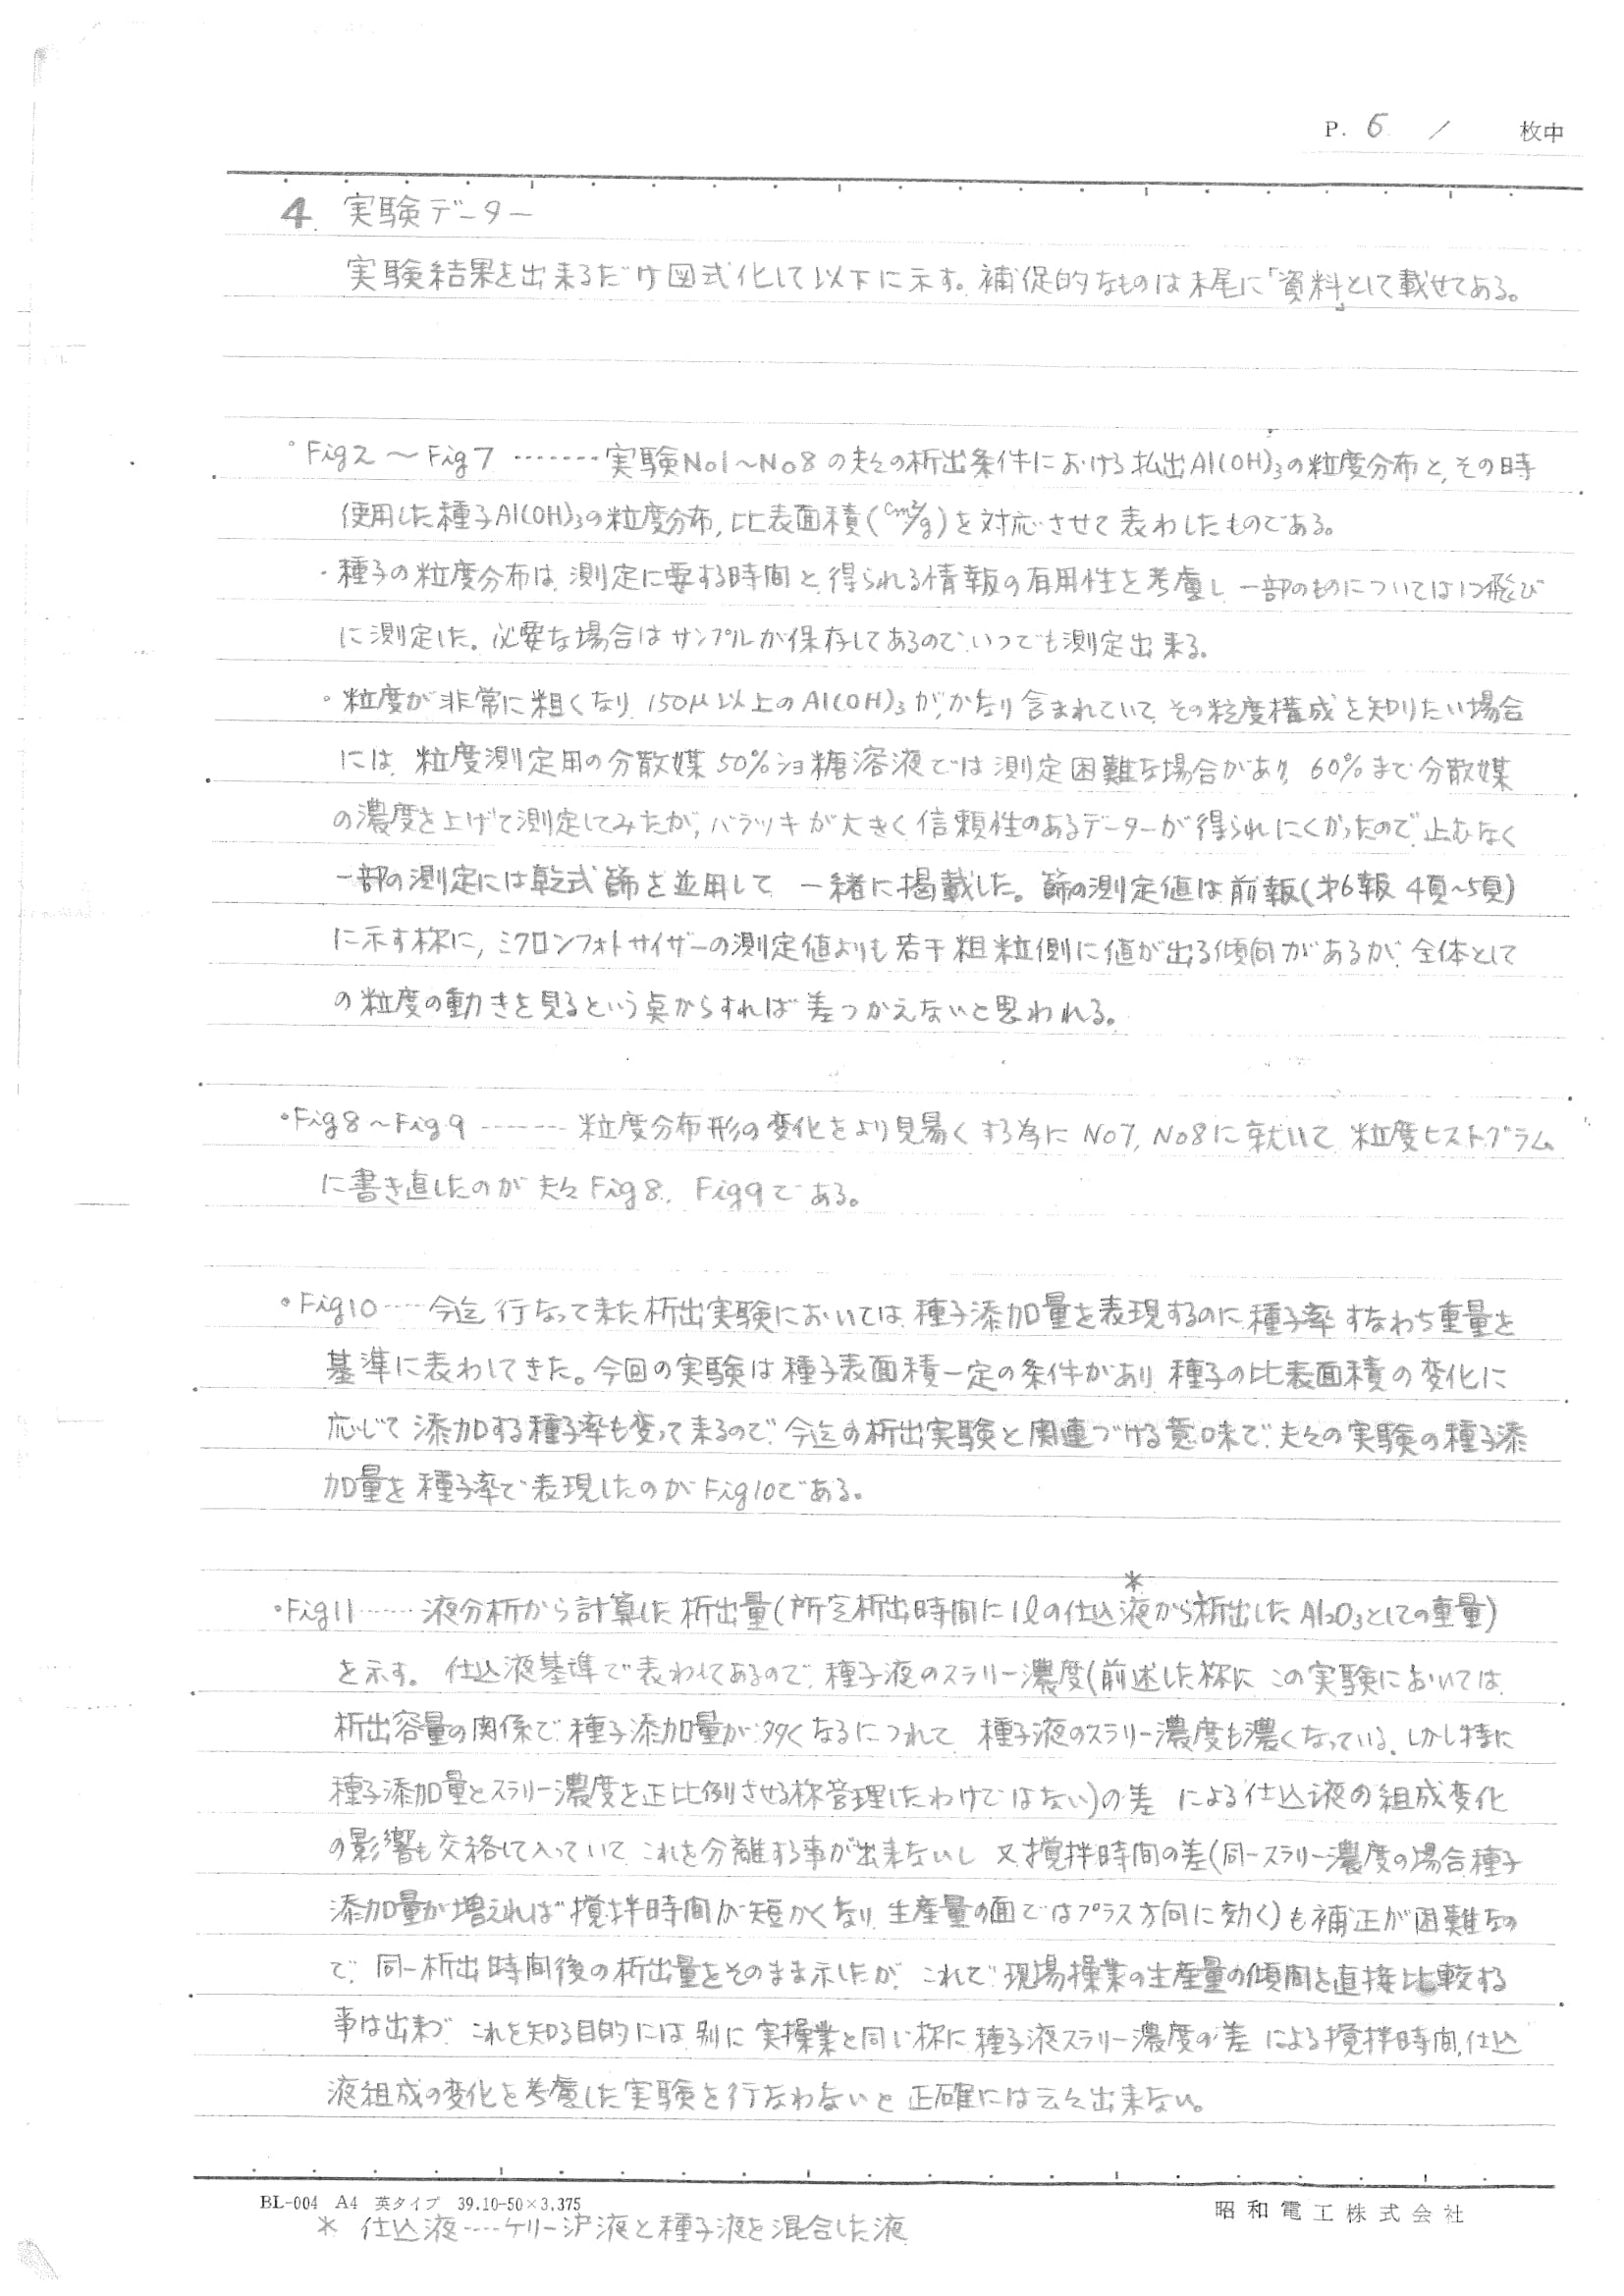 P. 6 / 枚中
4. 実験データー
実験結果を出来るだけ図式化して以下に示す。補促的なものは末尾に「資料」として載せてある。
°Fig2 ～ Fig7 ‥‥‥‥ 実験No1～No8の夫々の析出条件における払出Al(OH)₃の粒度分布と、その時
使用した種子Al(OH)₃の粒度分布, 比表面積(cm²/g)を対応させて表わしたものである。
・種子の粒度分布は、測定に要する時間と、得られる情報の有用性を考慮し、一部のものについては1つ飛び
に測定した。必要な場合はサンプルが保存してあるので、いつでも測定出来る。
・粒度が非常に粗くなり、150μ以上のAl(OH)₃が、かなり含まれていて、その粒度構成を知りたい場合
には、粒度測定用の分散媒50%ショ糖溶液では測定困難な場合があり、60%まで分散媒
の濃度を上げて測定してみたが, バラツキが大きく信頼性のあるデーターが得られにくかったので、止むなく
一部の測定には乾式篩を並用して、一緒に掲載した。篩の測定値は前報(才6報 4頁～5頁)
に示す様に, ミクロンフォトサイザーの測定値よりも若干粗粒側に値が出る傾向があるが、全体として
の粒度の動きを見るという点からすれば差つかえないと思われる。
°Fig8～Fig9 ‥‥‥‥ 粒度分布形の変化をより見易くする為にNo7, No8に就いて、粒度ヒストグラム
に書き直したのが夫々Fig8, Fig9である。
°Fig10‥‥‥今迄行なって来た析出実験においては、種子添加量を表現するのに、種子率すなわち重量を
基準に表わしてきた。今回の実験は種子表面積一定の条件があり、種子の比表面積の変化に
応じて添加する種子率も変って来るので、今迄の析出実験と関連づける意味で、夫々の実験の種子添
加量を種子率で表現したのがFig10である。
°Fig11‥‥‥液分析から計算した析出量(所定析出時間に1lの仕込*液から析出したAl₂O₃としての重量)
を示す。仕込液基準で表わしてあるので、種子液のスラリー濃度(前述した様に、この実験においては、
析出容量の関係で、種子添加量が多くなるにつれて、種子液のスラリー濃度も濃くなっている。しかし特に
種子添加量とスラリー濃度を正比例させる様管理したわけではない)の差による仕込液の組成変化
の影響も交絡して入っていて、これを分離する事が出来ないし、又攪拌時間の差(同一スラリー濃度の場合種子
添加量が増えれば攪拌時間が短かくなり、生産量の面ではプラス方向に効く)も補正が困難なの
で、同一析出時間後の析出量をそのまま示したが、これで現場操業の生産量の傾向を直接比較する
事は出来ず、これを知る目的には別に実操業と同じ様に種子液スラリー濃度の差による攪拌時間, 仕込
液組成の変化を考慮した実験を行なわないと正確には云々出来ない。
BL-004 A4 英タイプ 39.10-50×3.375 昭和電工株式会社
* 仕込液‥‥ケリー沪液と種子液を混合した液